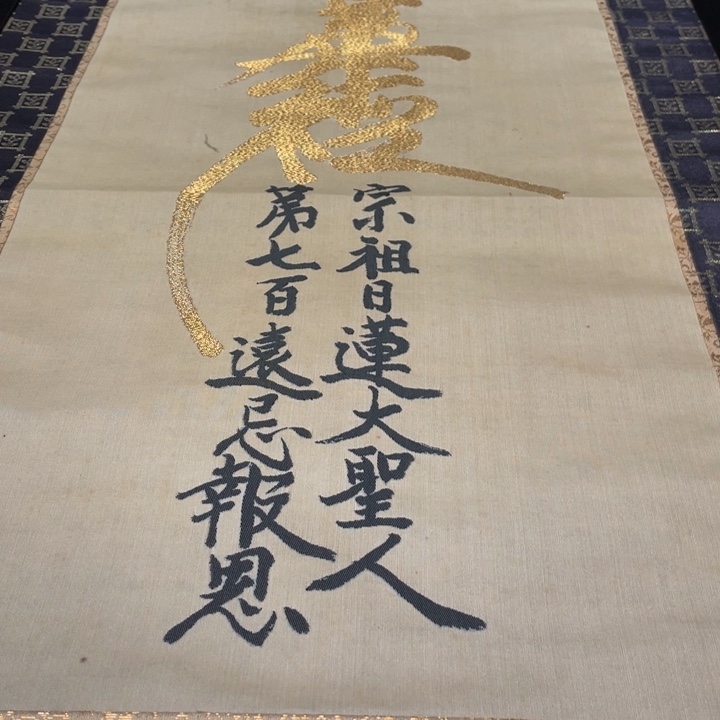 宗祖日蓮大聖人
第七百遠忌報恩